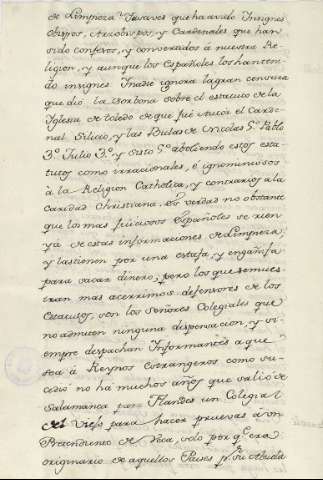 de Limpieza. Savaxes que ha avido Insignes
Obispos, Arzobispos, y Cardenales que han
sido confesos, y conversados à nuestra Re-
ligion, y aunque los Españoles los han teni-
do insignes. Inadie ignora la gran censura
que dió la Sorbona sobre el estatuto de la
Iglesia de toledo de que fué Autor el Carde-
nal Siliceo, y las Bulas de Nicolas 5.º Pablo
3.º Julio 3.º y Sixto 5.º aboliendo estos esta-
tutos como irracionales, è ignominiosos
à la Religion Catholica, y contrarios à la
caridad Christiana. Es verdad no obstante
que los mas juiciosos Españoles se rien
yá de estas informaciones de Limpieza,
y las tienen por una estafa, y engañifa
para sacar dinero; pero los que se mues-
tran mas acerrimos defensores de los
Estatutos, son los Señores Colegiales que
no admiten ninguna dispensacion, y si-
empre despachan Informantes aque
sea à Reynos estrangeros como su-
cedió no há muchos años que salió de
Salamanca para Flandes un Colegial
del Viejo para hacer pruevas à son
de Roca, solo por q.e era
originario de aquellos Paises p.r su Abuela